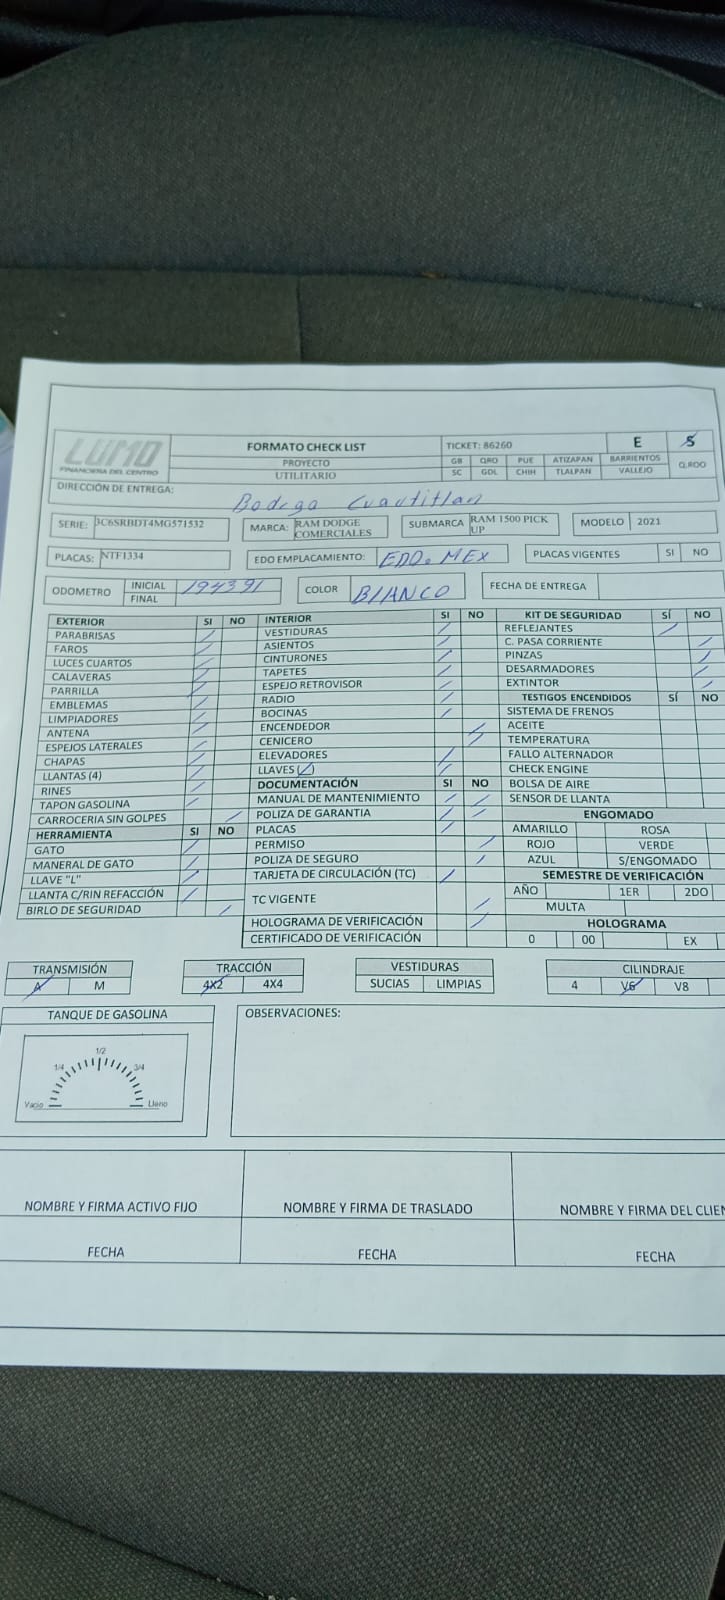 LUMO
FINANCIERA DEL CENTRO
FORMATO CHECK LIST
PROYECTO
UTILITARIO
TICKET: 86260
E S
GB QRO PUE ATIZAPAN BARRIENTOS
SC GDL CHIH TLALPAN VALLEJO
Q.ROO
DIRECCIÓN DE ENTREGA: Bodega Cuautitlan
SERIE: 3C6SRBDT4MG571532 MARCA: RAM DODGE COMERCIALES SUBMARCA RAM 1500 PICK UP MODELO 2021
PLACAS: NTF1334 EDO EMPLACAMIENTO: EDO. MEX PLACAS VIGENTES SI NO
ODOMETRO INICIAL 194391 COLOR BLANCO FECHA DE ENTREGA
FINAL
EXTERIOR SI NO
PARABRISAS /
FAROS /
LUCES CUARTOS /
CALAVERAS /
PARRILLA /
EMBLEMAS /
LIMPIADORES /
ANTENA /
ESPEJOS LATERALES /
CHAPAS /
LLANTAS (4) /
RINES /
TAPON GASOLINA /
CARROCERIA SIN GOLPES /
HERRAMIENTA SI NO
GATO /
MANERAL DE GATO /
LLAVE "L" /
LLANTA C/RIN REFACCIÓN /
BIRLO DE SEGURIDAD /
INTERIOR SI NO
VESTIDURAS /
ASIENTOS /
CINTURONES /
TAPETES /
ESPEJO RETROVISOR /
RADIO /
BOCINAS /
ENCENDEDOR /
CENICERO /
ELEVADORES /
LLAVES ( ) /
DOCUMENTACIÓN SI NO
MANUAL DE MANTENIMIENTO / /
POLIZA DE GARANTIA / /
PLACAS /
PERMISO /
POLIZA DE SEGURO /
TARJETA DE CIRCULACIÓN (TC) /
TC VIGENTE /
HOLOGRAMA DE VERIFICACIÓN /
CERTIFICADO DE VERIFICACIÓN
KIT DE SEGURIDAD SÍ NO
REFLEJANTES /
C. PASA CORRIENTE /
PINZAS /
DESARMADORES /
EXTINTOR /
TESTIGOS ENCENDIDOS SÍ NO
SISTEMA DE FRENOS
ACEITE
TEMPERATURA
FALLO ALTERNADOR
CHECK ENGINE
BOLSA DE AIRE
SENSOR DE LLANTA
ENGOMADO
AMARILLO ROSA
ROJO VERDE
AZUL S/ENGOMADO
SEMESTRE DE VERIFICACIÓN
AÑO 1ER 2DO
MULTA
HOLOGRAMA
0 00 EX
TRANSMISIÓN
A M
TRACCIÓN
4X2 4X4
VESTIDURAS
SUCIAS LIMPIAS
CILINDRAJE
4 V6 V8
TANQUE DE GASOLINA
1/4 1/2 3/4
Vacio Lleno
OBSERVACIONES:
NOMBRE Y FIRMA ACTIVO FIJO NOMBRE Y FIRMA DE TRASLADO NOMBRE Y FIRMA DEL CLIEN
FECHA FECHA FECHA